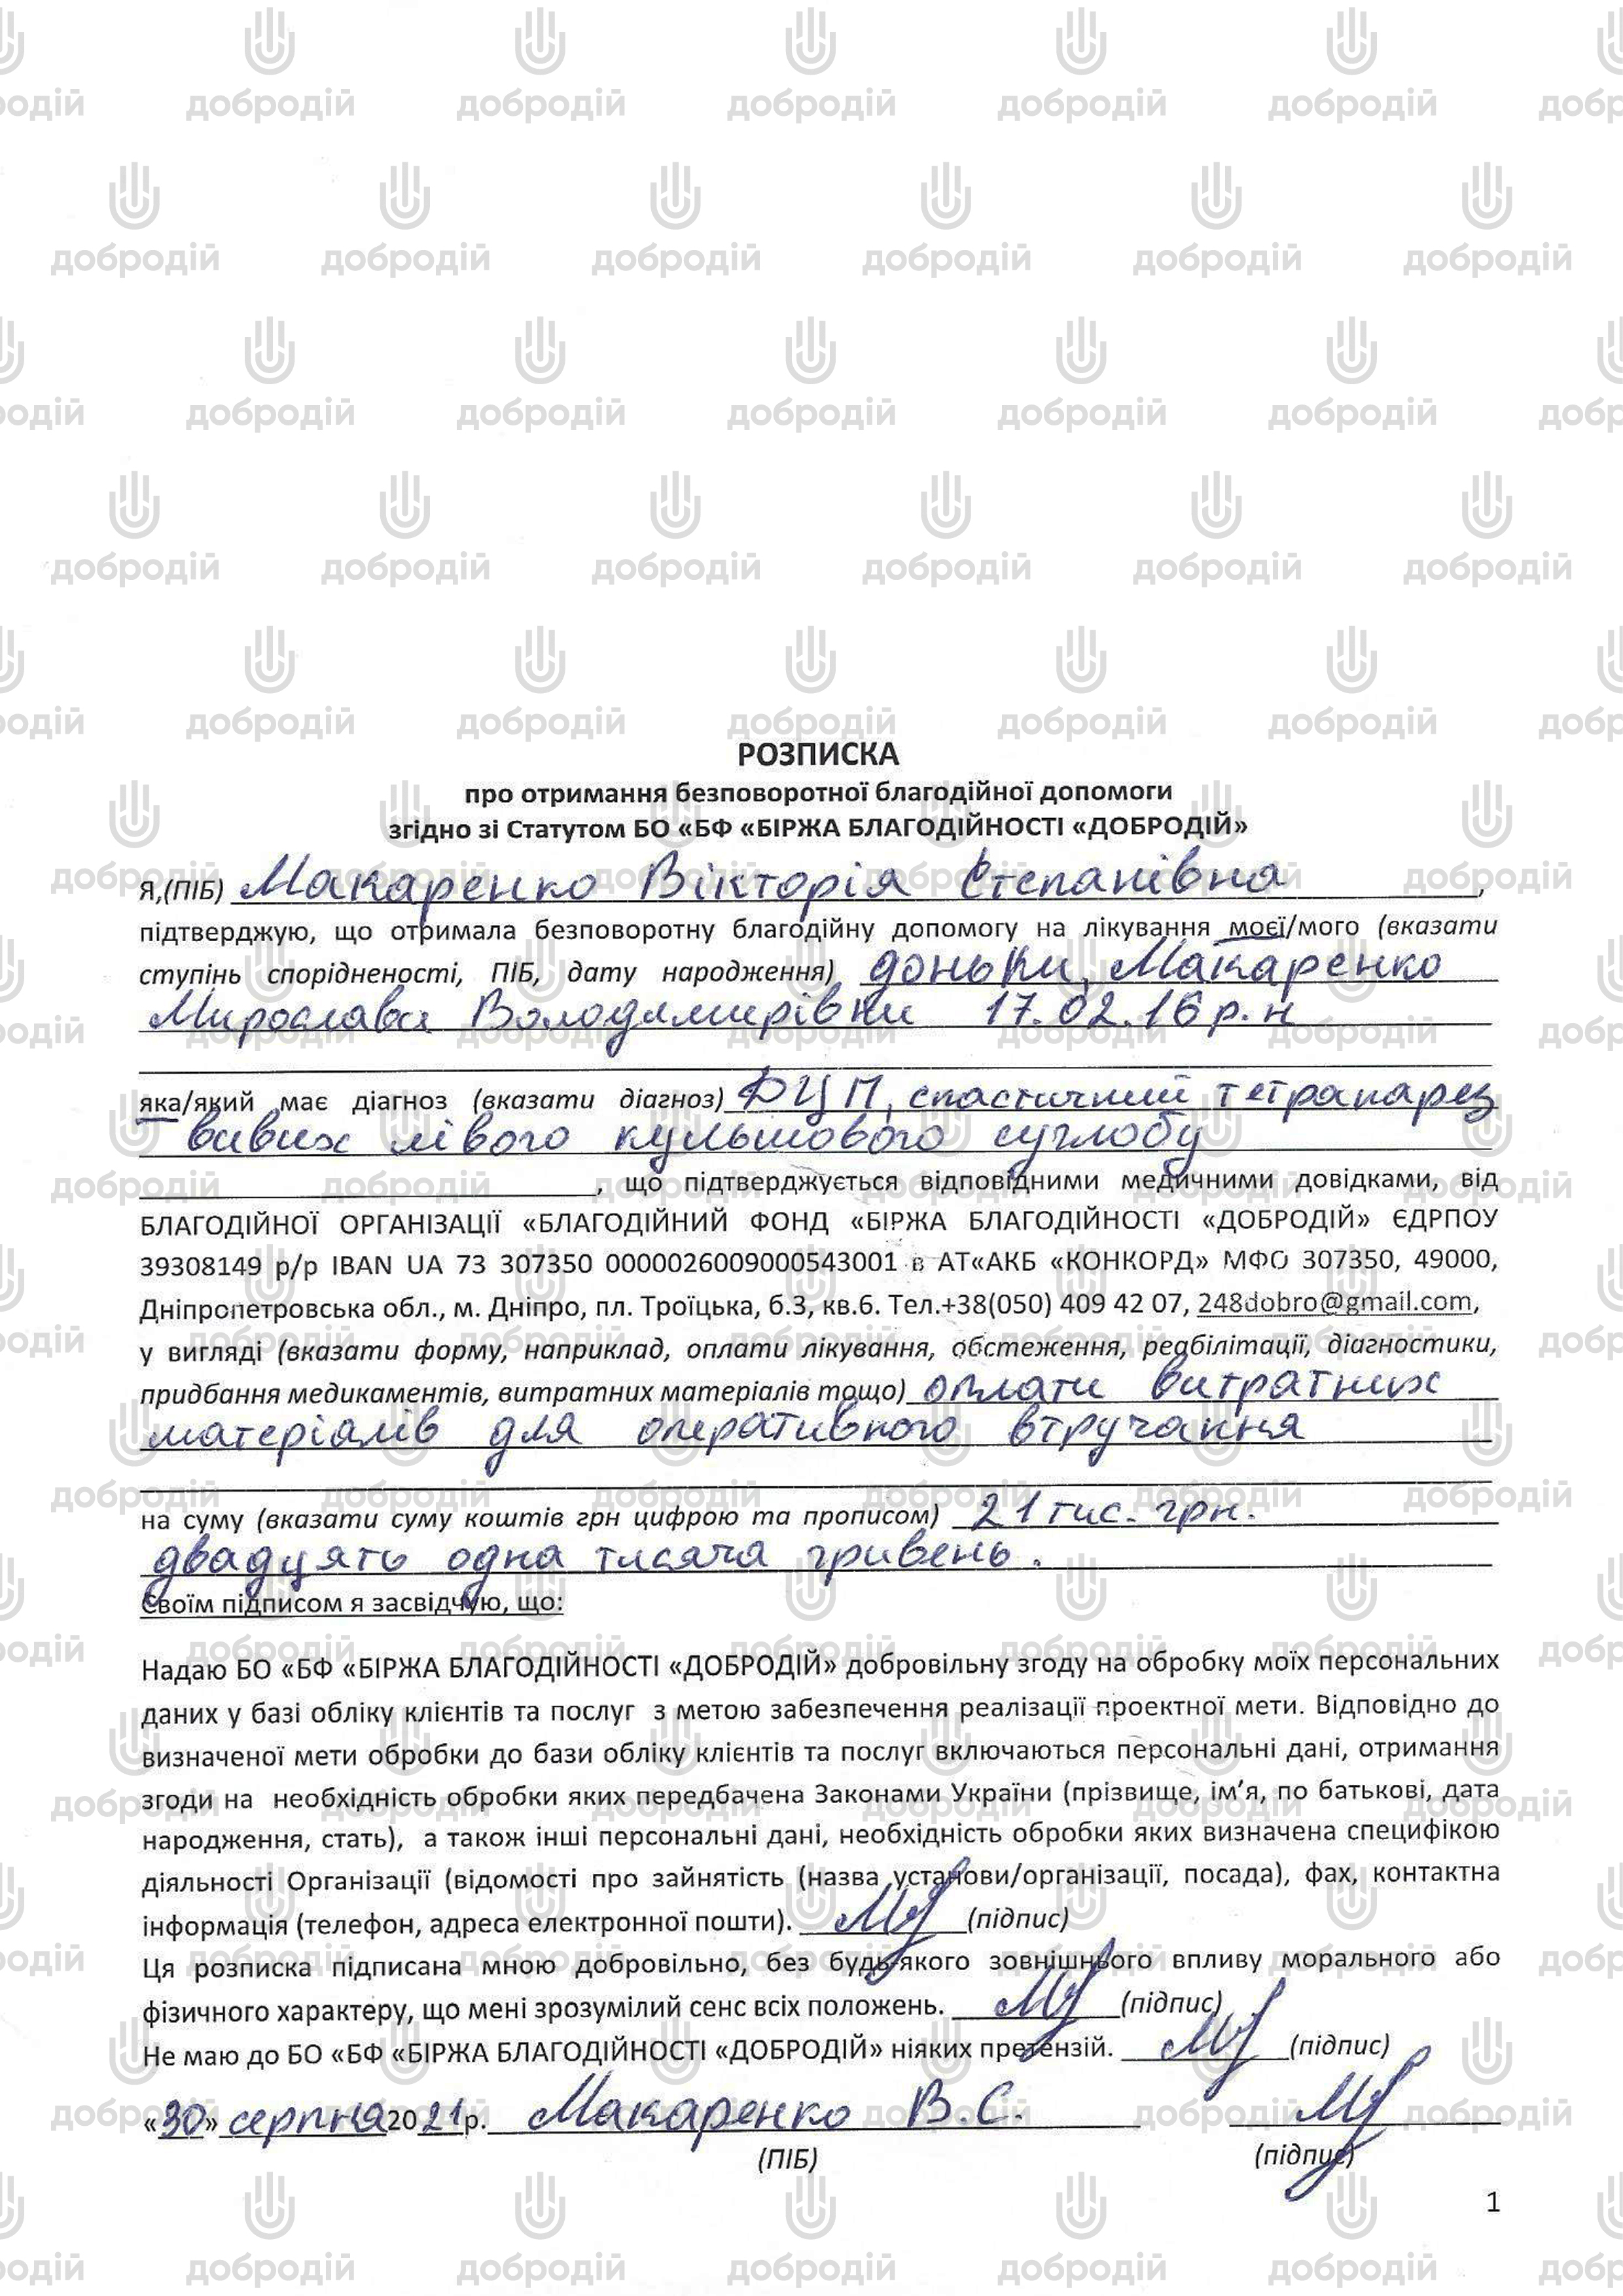 РОЗПИСКА
про отримання безповоротної благодійної допомоги
згідно зі Статутом БО «БФ «БІРЖА БЛАГОДІЙНОСТІ «ДОБРОДІЙ»
Я,(ПІБ) Макаренко Вікторія Степанівна,
підтверджую, що отримала безповоротну благодійну допомогу на лікування моєї/мого (вказати
ступінь спорідненості, ПІБ, дату народження) доньки, Макаренко
Мирослави Володимирівни 17.02.16 р.н
яка/який має діагноз (вказати діагноз) ДЦП, спастичний тетрапарез
вивих лівого кульшового суглобу
, що підтверджується відповідними медичними довідками, від
БЛАГОДІЙНОЇ ОРГАНІЗАЦІЇ «БЛАГОДІЙНИЙ ФОНД «БІРЖА БЛАГОДІЙНОСТІ «ДОБРОДІЙ» ЄДРПОУ
39308149 р/р IBAN UA 73 307350 0000026009000543001 в АТ«АКБ «КОНКОРД» МФО 307350, 49000,
Дніпропетровська обл., м. Дніпро, пл. Троїцька, б.3, кв.6. Тел.+38(050) 409 42 07, 248dobro@gmail.com,
у вигляді (вказати форму, наприклад, оплати лікування, обстеження, реабілітації, діагностики,
придбання медикаментів, витратних матеріалів тощо) оплати витратних
матеріалів для оперативного втручання
на суму (вказати суму коштів грн цифрою та прописом) 21 тис. грн.
двадцять одна тисяча гривень.
Своїм підписом я засвідчую, що:
Надаю БО «БФ «БІРЖА БЛАГОДІЙНОСТІ «ДОБРОДІЙ» добровільну згоду на обробку моїх персональних
даних у базі обліку клієнтів та послуг з метою забезпечення реалізації проектної мети. Відповідно до
визначеної мети обробки до бази обліку клієнтів та послуг включаються персональні дані, отримання
згоди на необхідність обробки яких передбачена Законами України (прізвище, ім’я, по батькові, дата
народження, стать), а також інші персональні дані, необхідність обробки яких визначена специфікою
діяльності Організації (відомості про зайнятість (назва установи/організації, посада), фах, контактна
інформація (телефон, адреса електронної пошти). (підпис)
Ця розписка підписана мною добровільно, без будь-якого зовнішнього впливу морального або
фізичного характеру, що мені зрозумілий сенс всіх положень. (підпис)
Не маю до БО «БФ «БІРЖА БЛАГОДІЙНОСТІ «ДОБРОДІЙ» ніяких претензій. (підпис)
«30» серпня 2021р. Макаренко В.С.
(ПІБ) (підпис)
1